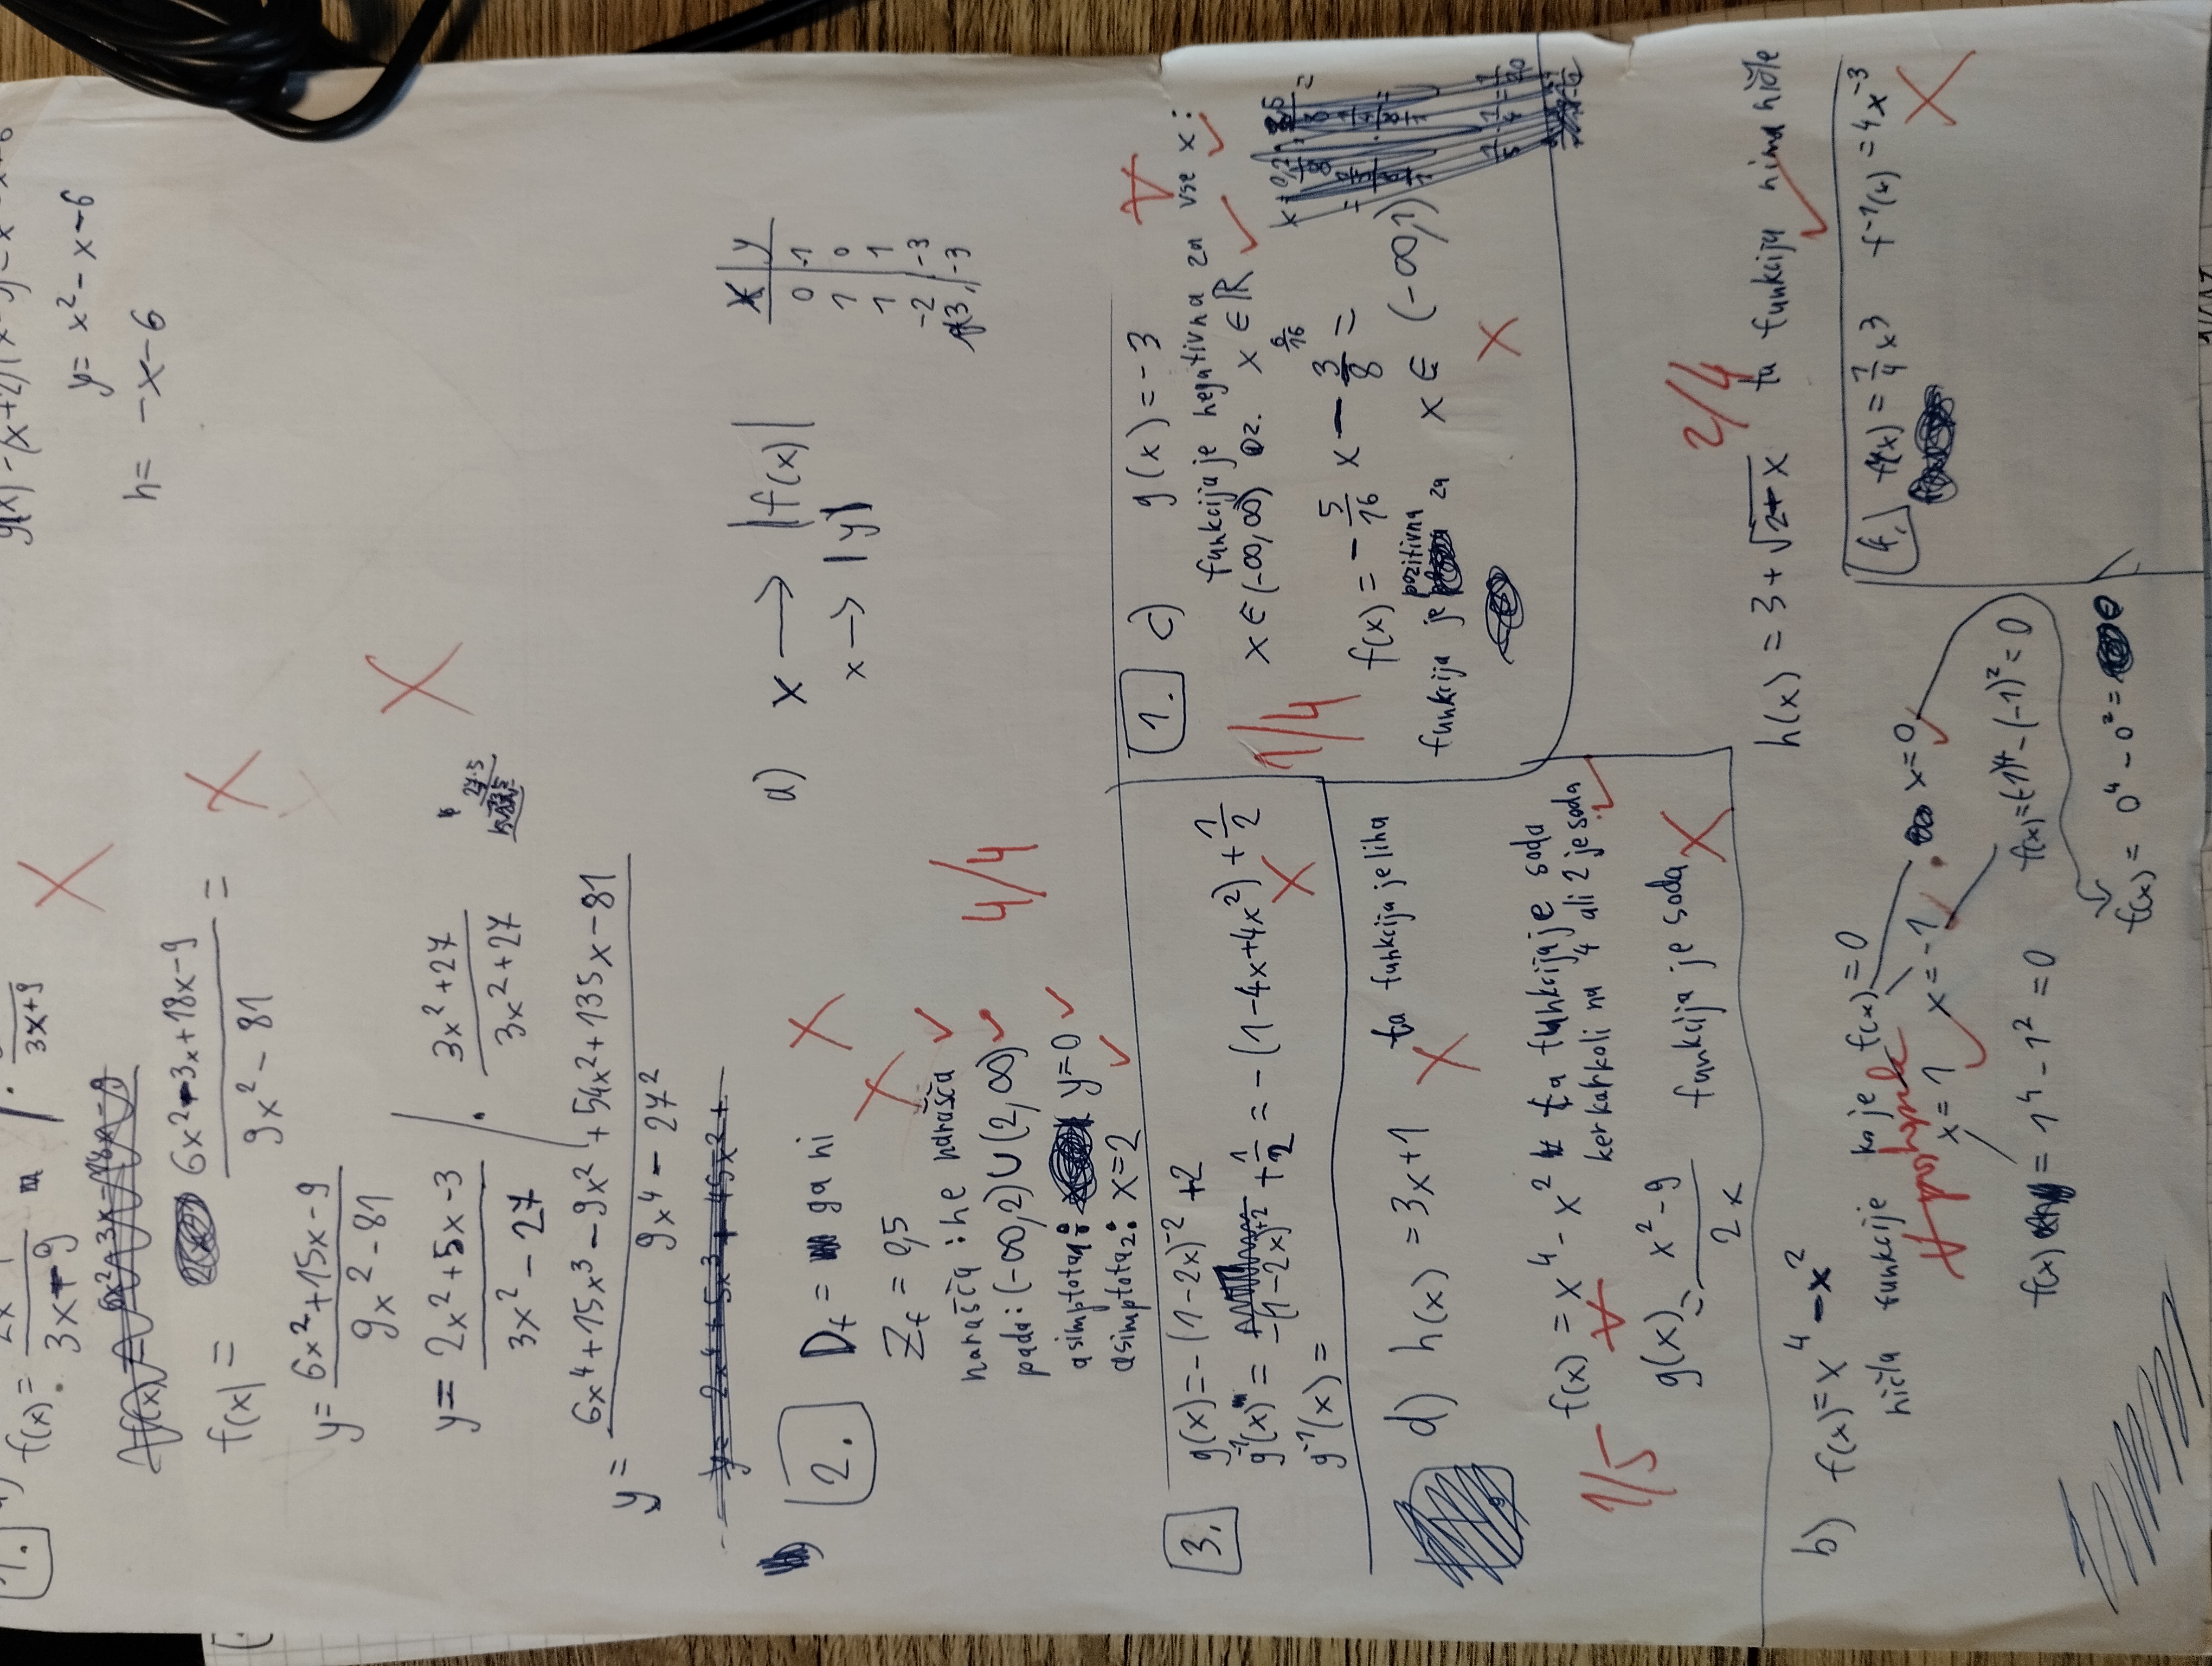 1.
f(x) = 2x-1 / 3x+9 · / 3x+9
f(x) = 6x²-3x-18x-9
f(x) = 6x²-3x+18x-9 / 9x²-81 =
y = 6x²+15x-9 / 9x²-81
y = 2x²+5x-3 / 3x²-27 / · 3x²+27 / 3x²+27
27·5
y = 6x⁴+15x³-9x²+54x²+135x-81 / 9x⁴-27²
y = 2x⁴+5x³+45x²+
y = x²-x-6
h = -x-6
2. Df = ga ni
Zf = 0,5
narašča: ne narašča
pada: (-∞,2)∪(2,∞)
4/4
asimptota1: y=0
asimptota2: x=2
a) x → |f(x)|
x → |y|
x | y
0 | -1
1 | 0
1 | 1
-2 | -3
3 | -3
3. g(x) = -(1-2x)⁻²+2
g⁻¹(x) = -(1-2x)⁺² + 1/2 = -(1-4x+4x²) + 1/2
g⁻¹(x) =
1. c) g(x) = -3
funkcija je negativna za vse x:
x∈(-∞,∞) oz. x∈ℝ
1/4
6/16
f(x) = -5/16 x - 3/8 =
funkcija je pozitivna za x∈(-∞,1)
d) h(x) = 3x+1 ta funkcija je liha
f(x) = x⁴-x² ta funkcija je soda
ker karkoli na 4 ali 2 je soda
1/5
g(x) = x²-9 / 2x funkcija je soda
2/4
h(x) = 3+√2+x ta funkcija nima ničle
b) f(x) = x⁴-x²
ničla funkcije ko je f(x) = 0
x=1 x=-1 x=0
f(x) = 1⁴-1² = 0 f(x) = (-1)⁴-(-1)² = 0
f(x) = 0⁴-0² = 0
4. f(x) = 1/4 x³ f⁻¹(x) = 4x⁻³